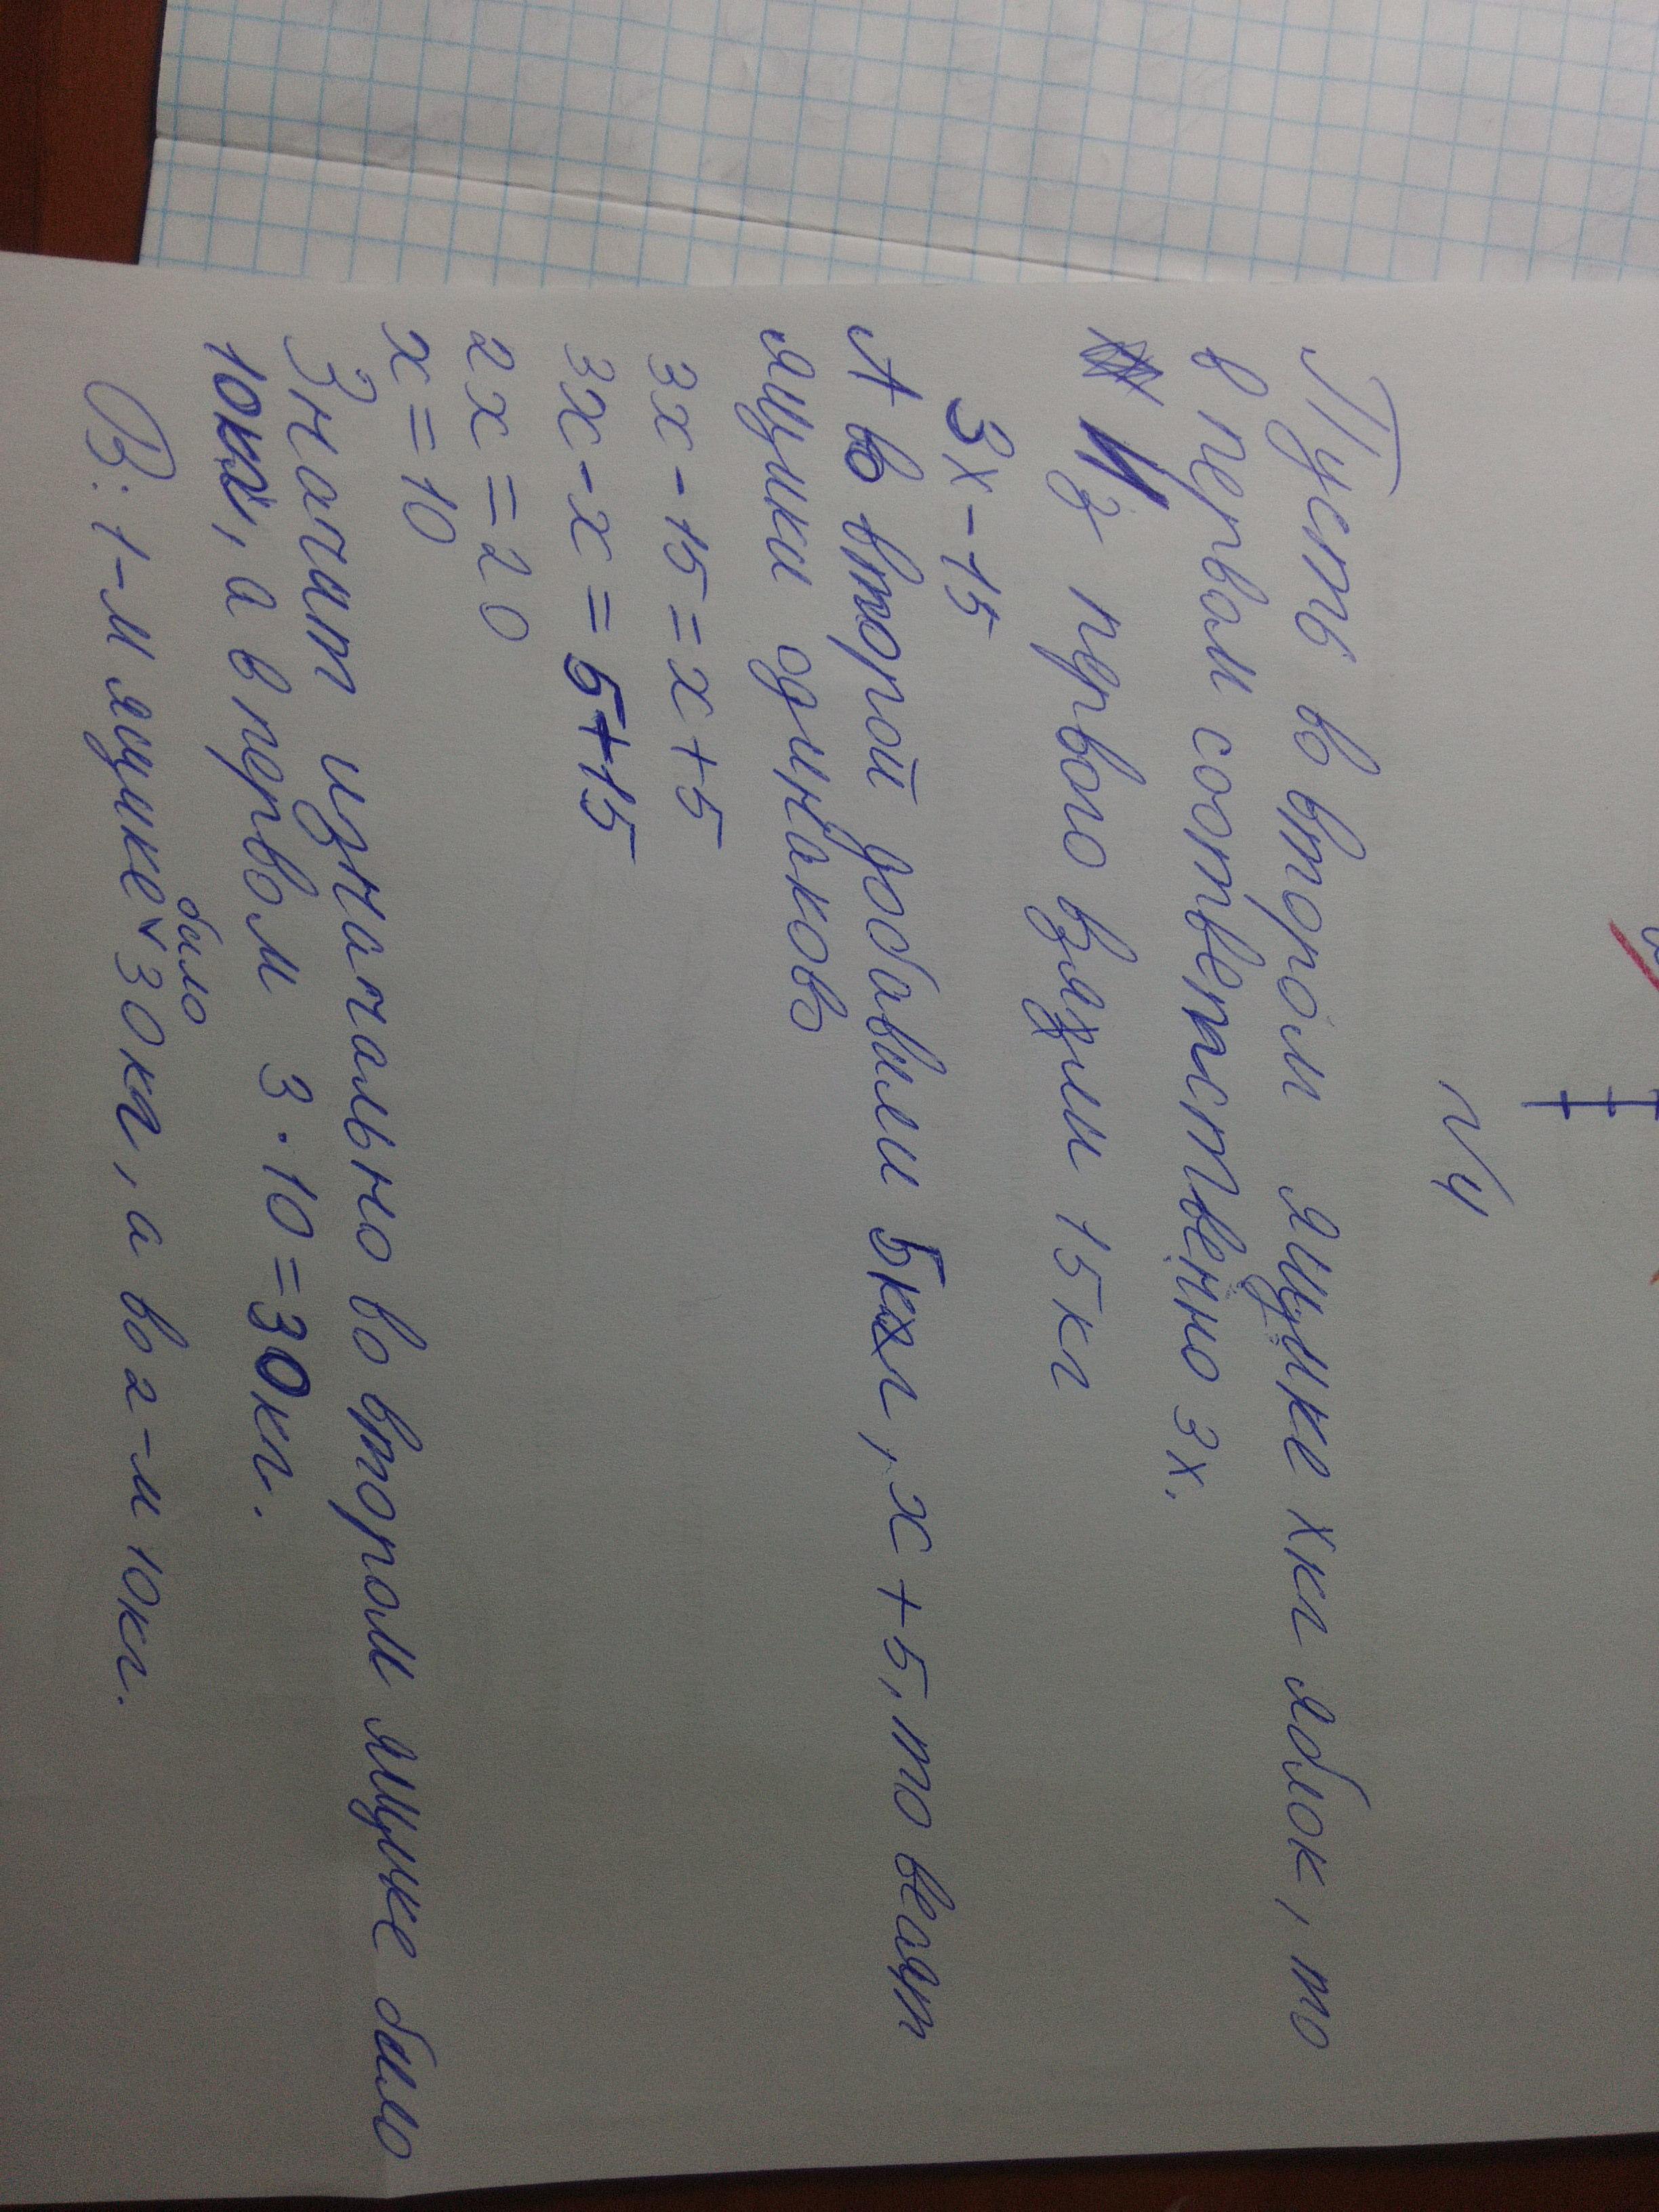 N4
Пусть во втором ящике х кг яблок, то
в первом соответственно 3х.
Из первого взяли 15 кг
3х-15
А во второй добавили 5 кг, х+5, то весят
ящики одинаково
3х-15=х+5
3х-х=5+15
2х=20
х=10
Значит изначально во втором ящике было
10кг, а в первом 3·10=30кг.
В: 1-м ящике было 30кг, а во 2-м 10кг.